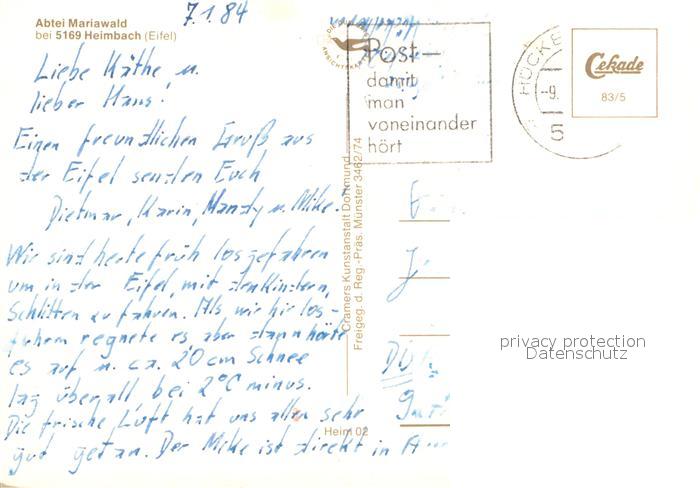 7.1.84
Abtei Mariawald
bei 5169 Heimbach (Eifel)
Liebe Käthe, u.
lieber Hans!
Einen freundlichen Gruß aus
der Eifel senden Euch
Dietmar, Karin, Mandy u. Mike.
Wir sind heute früh losgefahren
um in der Eifel, mit den Kindern,
Schlitten zu fahren. Als wir hir los-
fuhren regnete es, aber dann hörte
es auf u. ca. 20 cm Schnee
lag überall bei 2°C minus.
Die frische Luft hat uns allen sehr
gut getan. Der Mike ist direkt in
Post-
damit
man
voneinander
hört
HÜCKE
-9.
5
Cekade
83/5
Cramers Kunstanstalt Dortmund
Freigeg. d. Reg.-Präs. Münster 3462/74
Heim 02
privacy protection
Datenschutz